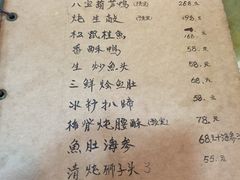 八宝葫芦鸭(预定) 268.元
炖生敲(预定) 198.元
松鼠桂鱼 168.元
香酥鸭 58.元
生炒鱼头 58.元
三鲜烩鱼肚 58.元
水扒蹄 58.元
炖腰酥(预定) 78.元
鱼肚海参 68.元
清炖狮子头 55.元